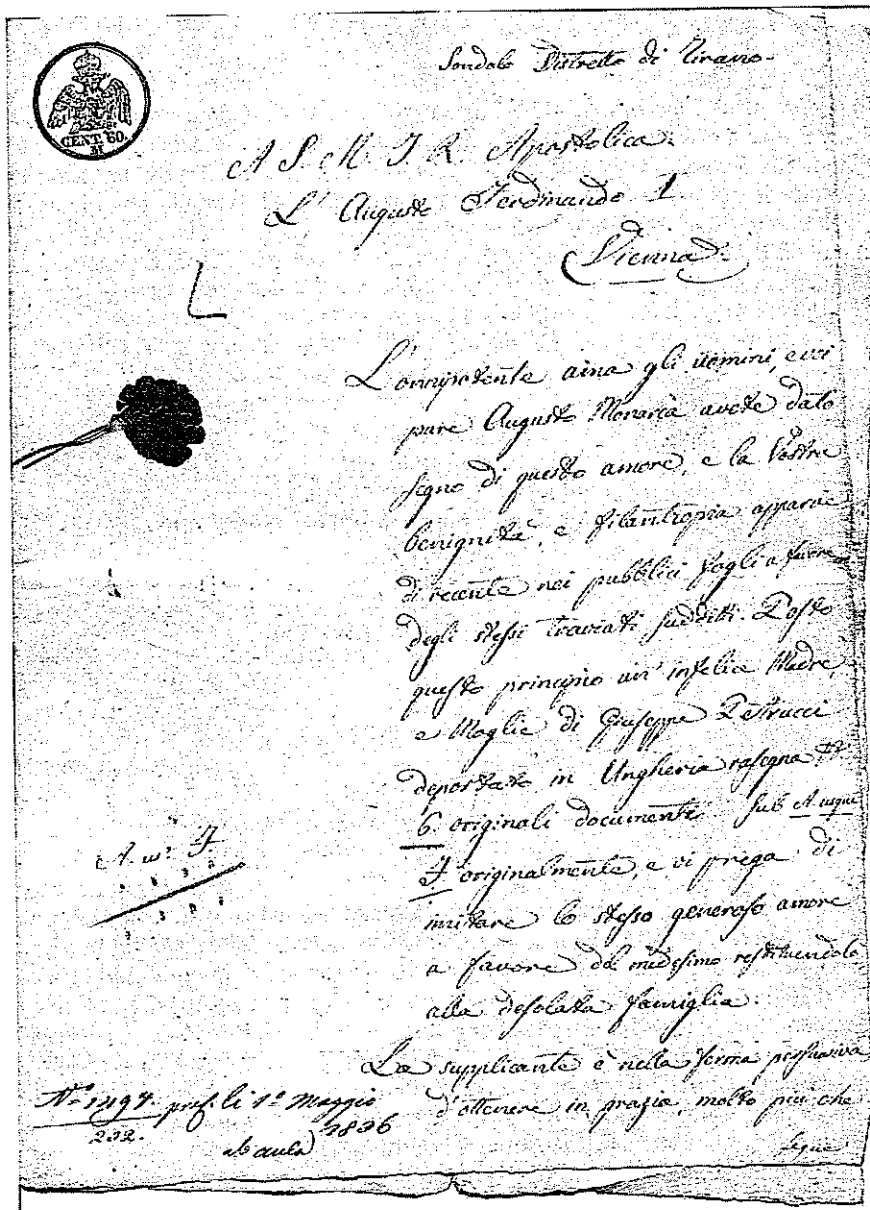 CENT. 50.
Sondalo Distretto di Tirano
A S. M. I. R. Apostolica
L' Augusto Ferdinando I
Vienna
L'onnipotente ama gli uomini, e voi
pure Augusto Monarca avete dato
segno di questo amore, e la Vostra
benignità, e filantropia apparve
di recente nei pubblici fogli a favore
degli stessi traviati sudditi. Posto
questo principio un' infelice Madre,
e Moglie di Giuseppe Petrucci
deportato in Ungheria rasegna
6. originali documenti sub A usque
F originalmente, e vi prega di
imitare lo stesso generoso amore
a favore del medesimo restituendolo
alla desolata famiglia.
La supplicante è nella ferma persuasiva
d'ottenere in grazia, molto più che
segue
A. us. F
pres. li 1º Maggio
232. 1836
ab aula